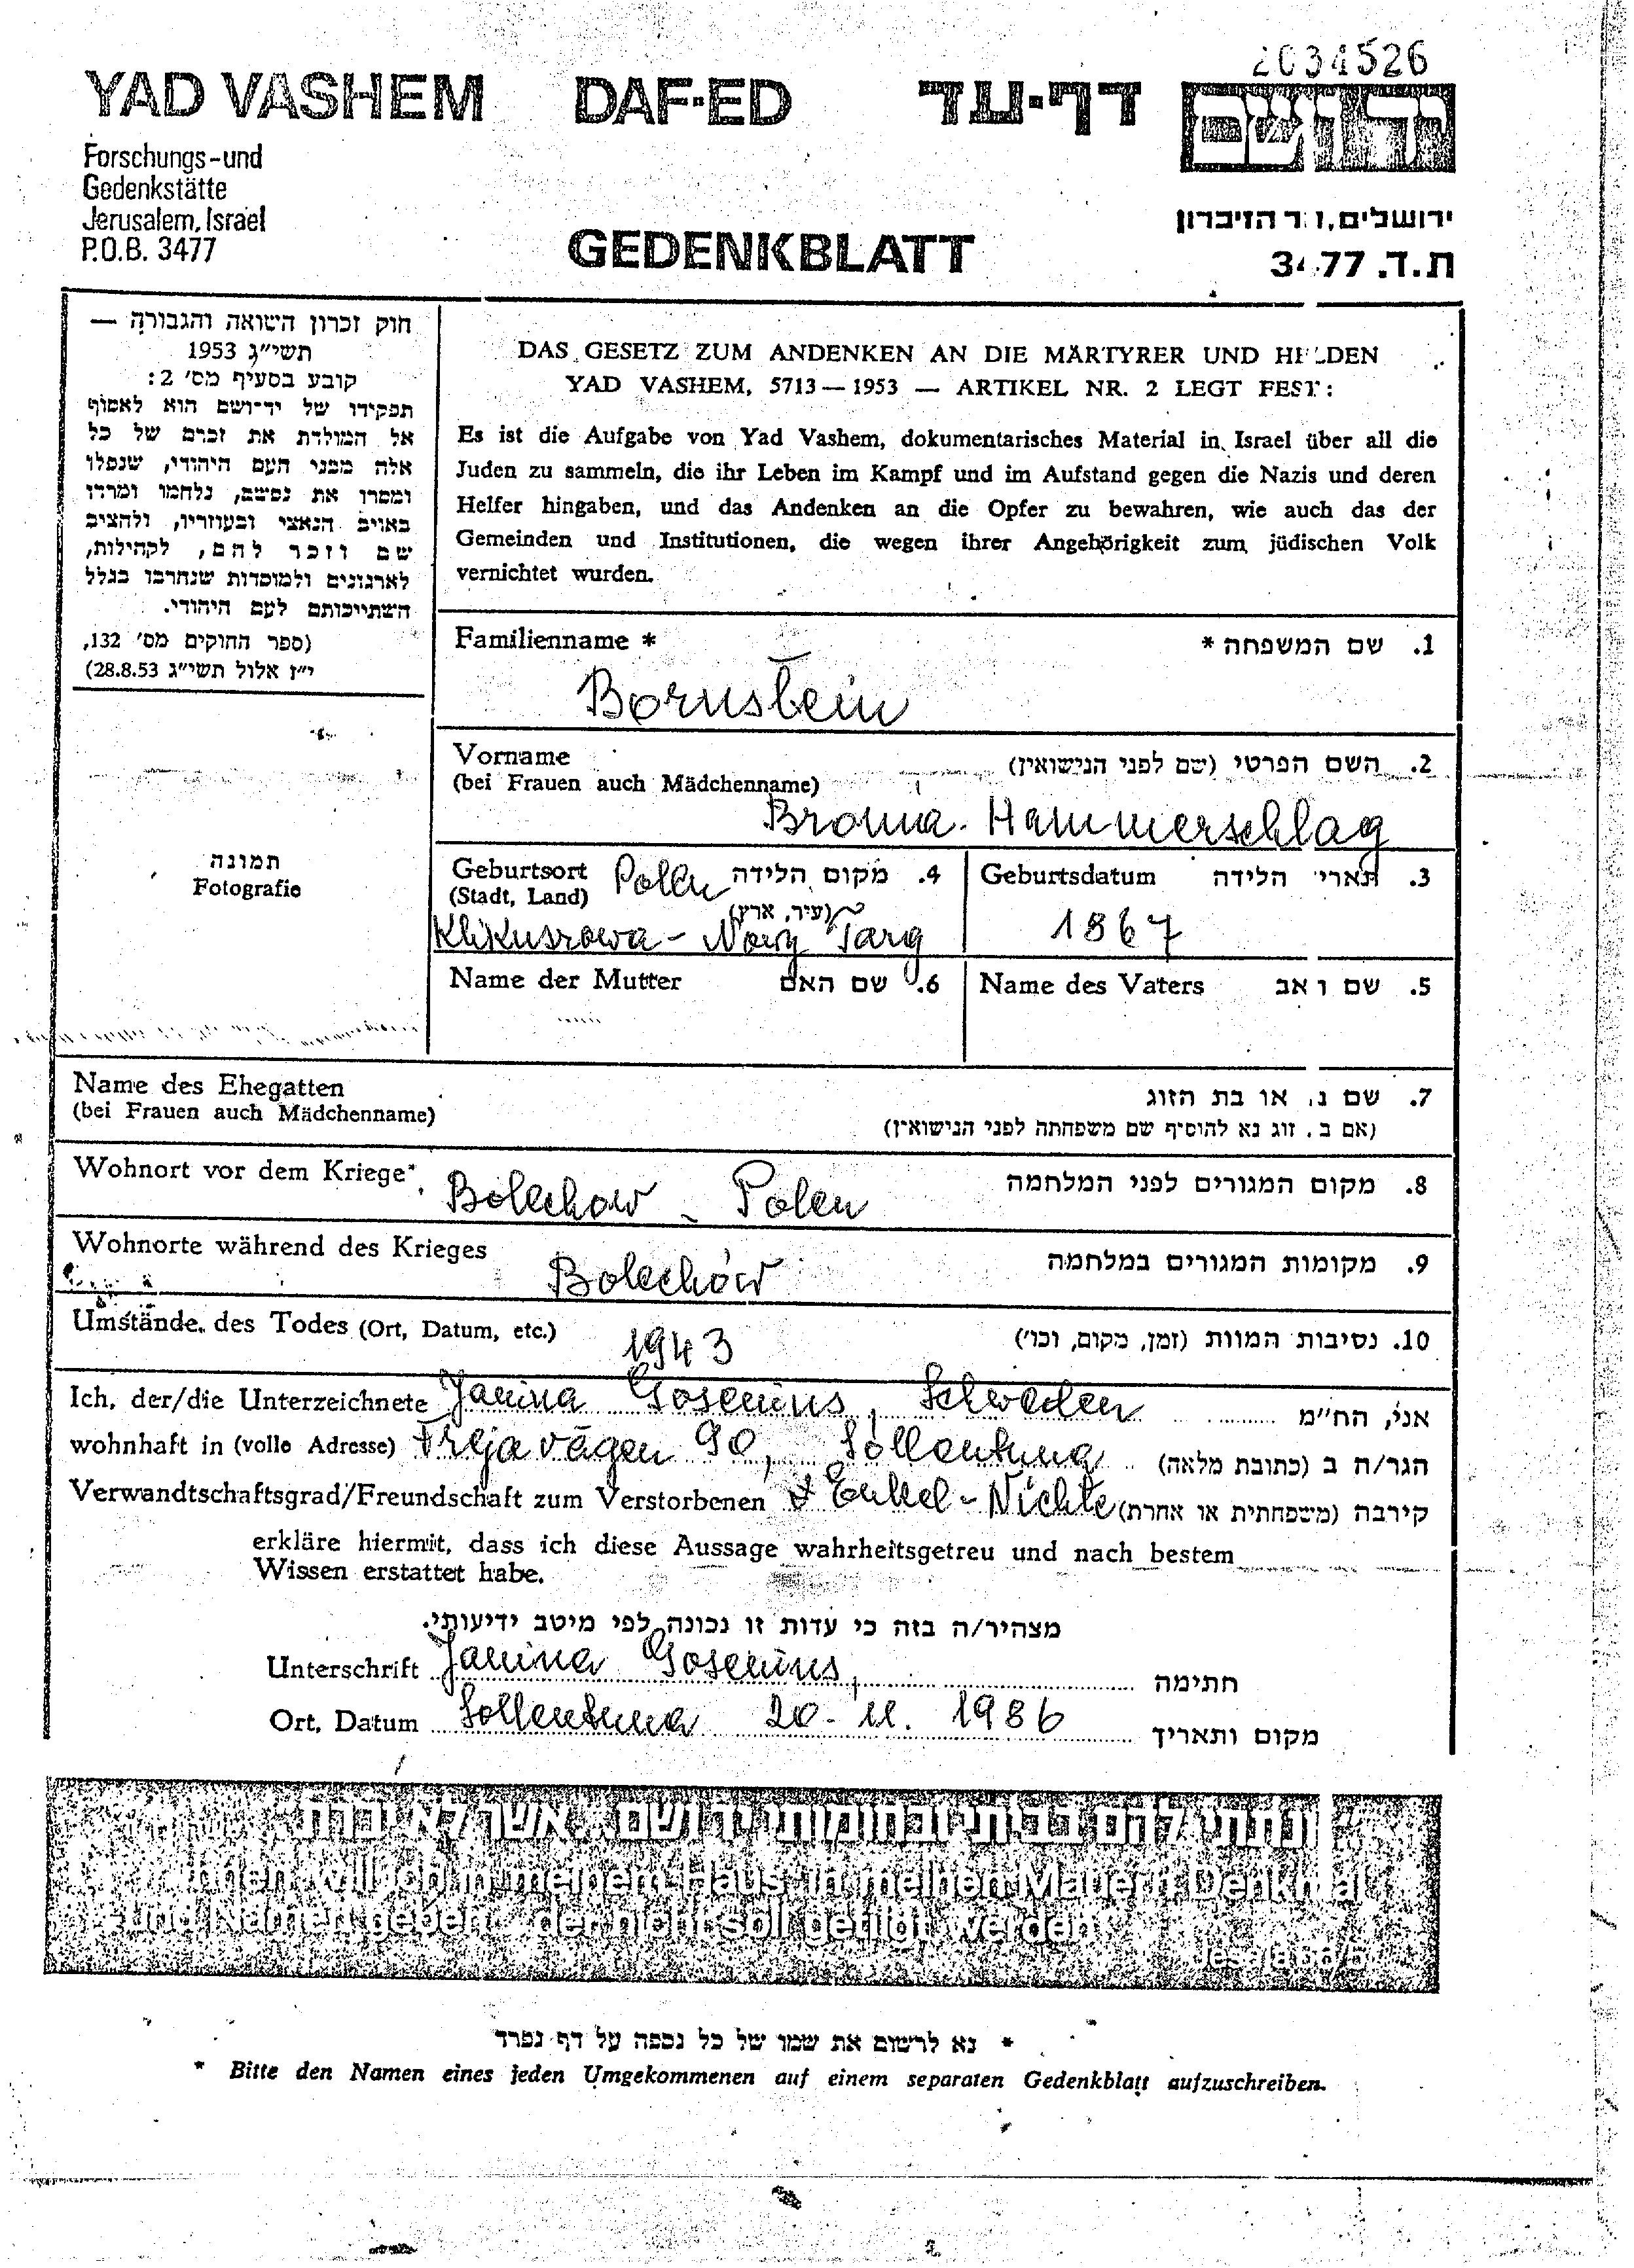 2034526
YAD VASHEM DAF-ED דף-עד ידושם
Forschungs-und
Gedenkstätte
Jerusalem, Israel
P.O.B. 3477
GEDENKBLATT
ירושלים, הר הזיכרון
ת.ד. 3477
חוק זכרון השואה והגבורה —
תשי״ג 1953
קובע בסעיף מס׳ 2:
תפקידו של יד־ושם הוא לאסוף
אל המולדת את זכרם של כל
אלה מבני העם היהודי, שנפלו
ומסרו את נפשם, נלחמו ומרדו
באויב הנאצי ובעוזריו, ולהציב
שם וזכר להם, לקהילות,
לארגונים ולמוסדות שנחרבו בגלל
השתייכותם לעם היהודי.
(ספר החוקים מס׳ 132,
י״ז אלול תשי״ג 28.8.53)
DAS GESETZ ZUM ANDENKEN AN DIE MÄRTYRER UND HELDEN
YAD VASHEM, 5713 — 1953 — ARTIKEL NR. 2 LEGT FEST:
Es ist die Aufgabe von Yad Vashem, dokumentarisches Material in Israel über all die
Juden zu sammeln, die ihr Leben im Kampf und im Aufstand gegen die Nazis und deren
Helfer hingaben, und das Andenken an die Opfer zu bewahren, wie auch das der
Gemeinden und Institutionen, die wegen ihrer Angehörigkeit zum jüdischen Volk
vernichtet wurden.
Familienname * 1. שם המשפחה *
Bornstein
Vorname 2. השם הפרטי (שם לפני הנישואין)
(bei Frauen auch Mädchenname)
Bronia. Hammerschlag
תמונה
Fotografie
Geburtsort Polen 4. מקום הלידה
(Stadt, Land) (עיר, ארץ)
Klikuszowa - Nowy Targ
Geburtsdatum 3. תאריך הלידה
1867
Name der Mutter 6. שם האם
Name des Vaters 5. שם האב
Name des Ehegatten 7. שם בן או בת הזוג
(bei Frauen auch Mädchenname) (אם בת זוג נא להוסיף שם משפחתה לפני הנישואין)
Wohnort vor dem Kriege* Bolechow - Polen 8. מקום המגורים לפני המלחמה
Wohnorte während des Krieges Bolechów 9. מקומות המגורים במלחמה
Umstände des Todes (Ort, Datum, etc.) 1943 10. נסיבות המוות (זמן, מקום, וכו׳)
Ich, der/die Unterzeichnete Janina Gosenius, Schweden אני, הח״מ
wohnhaft in (volle Adresse) Frejavägen 90, Sollentuna הגר/ה ב (כתובת מלאה)
Verwandtschaftsgrad/Freundschaft zum Verstorbenen Enkel-Nichte קירבה (משפחתית או אחרת)
erkläre hiermit, dass ich diese Aussage wahrheitsgetreu und nach bestem
Wissen erstattet habe.
מצהיר/ה בזה כי עדות זו נכונה לפי מיטב ידיעותי.
Unterschrift Janina Gosenius, חתימה
Ort, Datum Sollentuna 20-11. 1986 מקום ותאריך
ונתתי להם בביתי ובחומותי יד ושם... אשר לא יכרת
Ihnen will ich in meinem Haus, in meinen Mauern Denkmal
und Namen geben... der nicht soll getilgt werden
Jesaja 56/5
* נא לרשום את שמו של כל נספה על דף נפרד
* Bitte den Namen eines jeden Umgekommenen auf einem separaten Gedenkblatt aufzuschreiben.